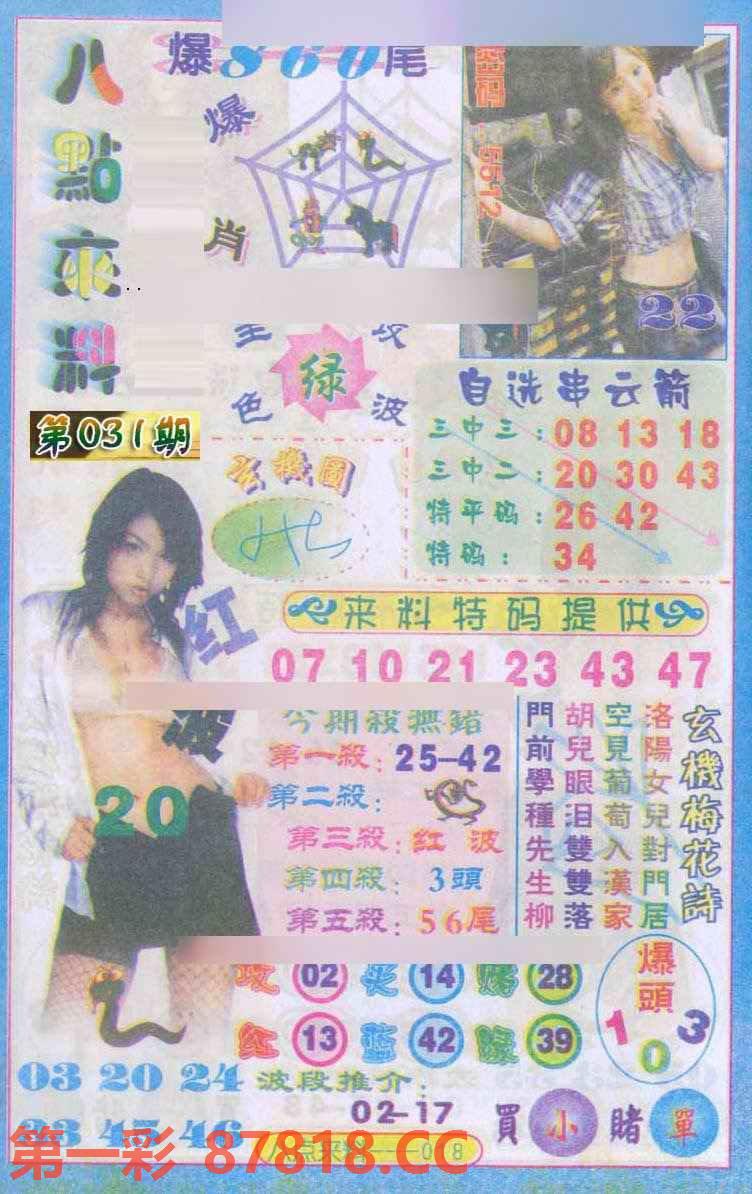 爆860尾
八點來料
爆肖
5512
22
绿
色波
第031期
自选串云箭
三中三：08 13 18
三中二：20 30 43
特平码：26 42
特码：34
玄機圖
红波
来料特码提供
07 10 21 23 43 47
今期殺無錯
第一殺：25-42
第二殺：
第三殺：红波
第四殺：3頭
第五殺：56尾
20
玄機梅花詩
洛陽女兒對門居
空見葡萄入漢家
胡兒眼泪雙雙落
門前學種先生柳
02 14 28
红 13 蓝 42 绿 39
爆頭
1 0 3
03 20 24
波段推介：
02-17
買小賭單
第一彩 87818.CC